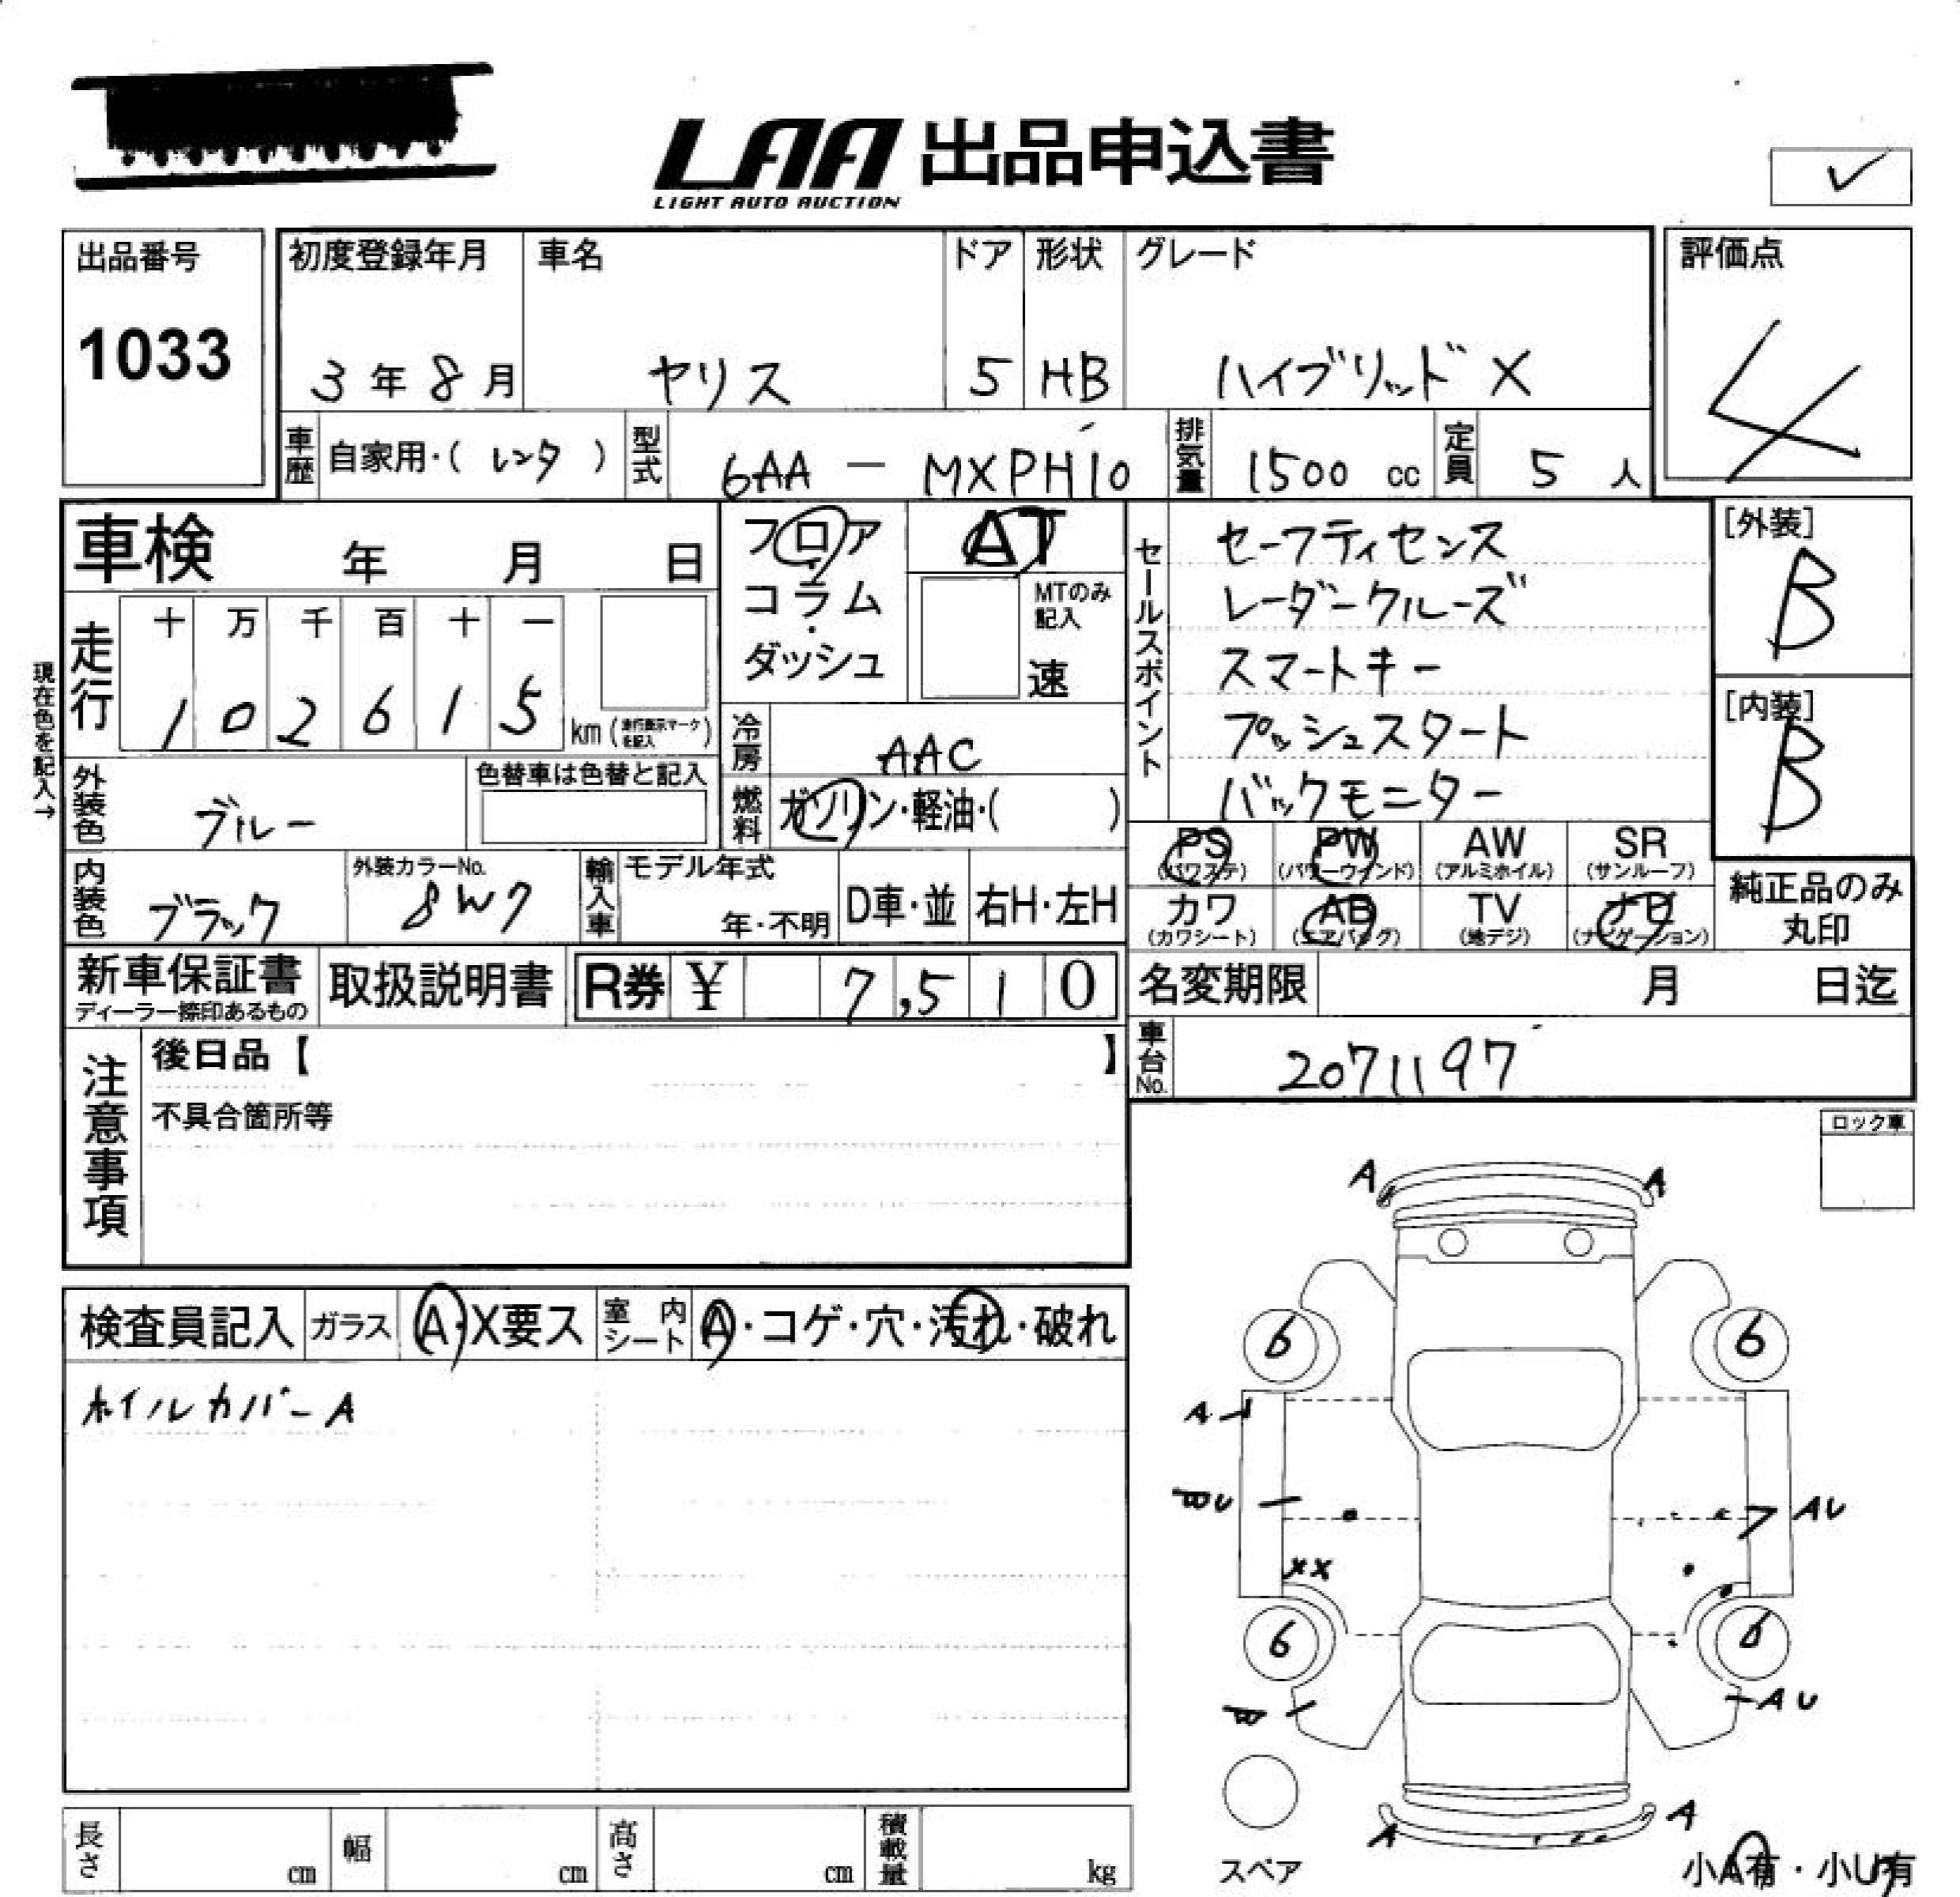 LAA 出品申込書
LIGHT AUTO AUCTION
✓
出品番号
1033
初度登録年月
3年8月
車名
ヤリス
ドア
5
形状
HB
グレード
ハイブリッドX
評価点
4
車歴 自家用・(レンタ)
型式 6AA - MXPH10
排気量 1500 cc
定員 5人
車検 年 月 日
フロア・コラム・ダッシュ
AT
MTのみ記入
速
セールスポイント
セーフティセンス
レーダークルーズ
スマートキー
プッシュスタート
バックモニター
[外装]
B
[内装]
B
現在色を記入→
走行
十 万 千 百 十 一
1 0 2 6 1 5 km (走行表示マークを記入)
冷房 AAC
燃料 ガソリン・軽油・( )
外装色 ブルー
色替車は色替と記入
内装色 ブラック
外装カラーNo.
8W7
輸入車
モデル年式
年・不明
D車・並
右H・左H
PS (パワステ)
PW (パワーウインド)
AW (アルミホイル)
SR (サンルーフ)
カワ (カワシート)
AB (エアバッグ)
TV (地デジ)
ナビ (ナビゲーション)
純正品のみ丸印
新車保証書
ディーラー捺印あるもの
取扱説明書
R券 ¥ 7,510
名変期限 月 日迄
車台No. 2071197
注意事項
後日品【 】
不具合箇所等
ロック車
検査員記入
ガラス A・X要ス
室内シート A・コゲ・穴・汚れ・破れ
ホイルカバーA
A A
6 6
A
U AU
XX
6 6
AU
A A
スペア
小A有・小U有
長さ cm
幅 cm
高さ cm
積載量 kg